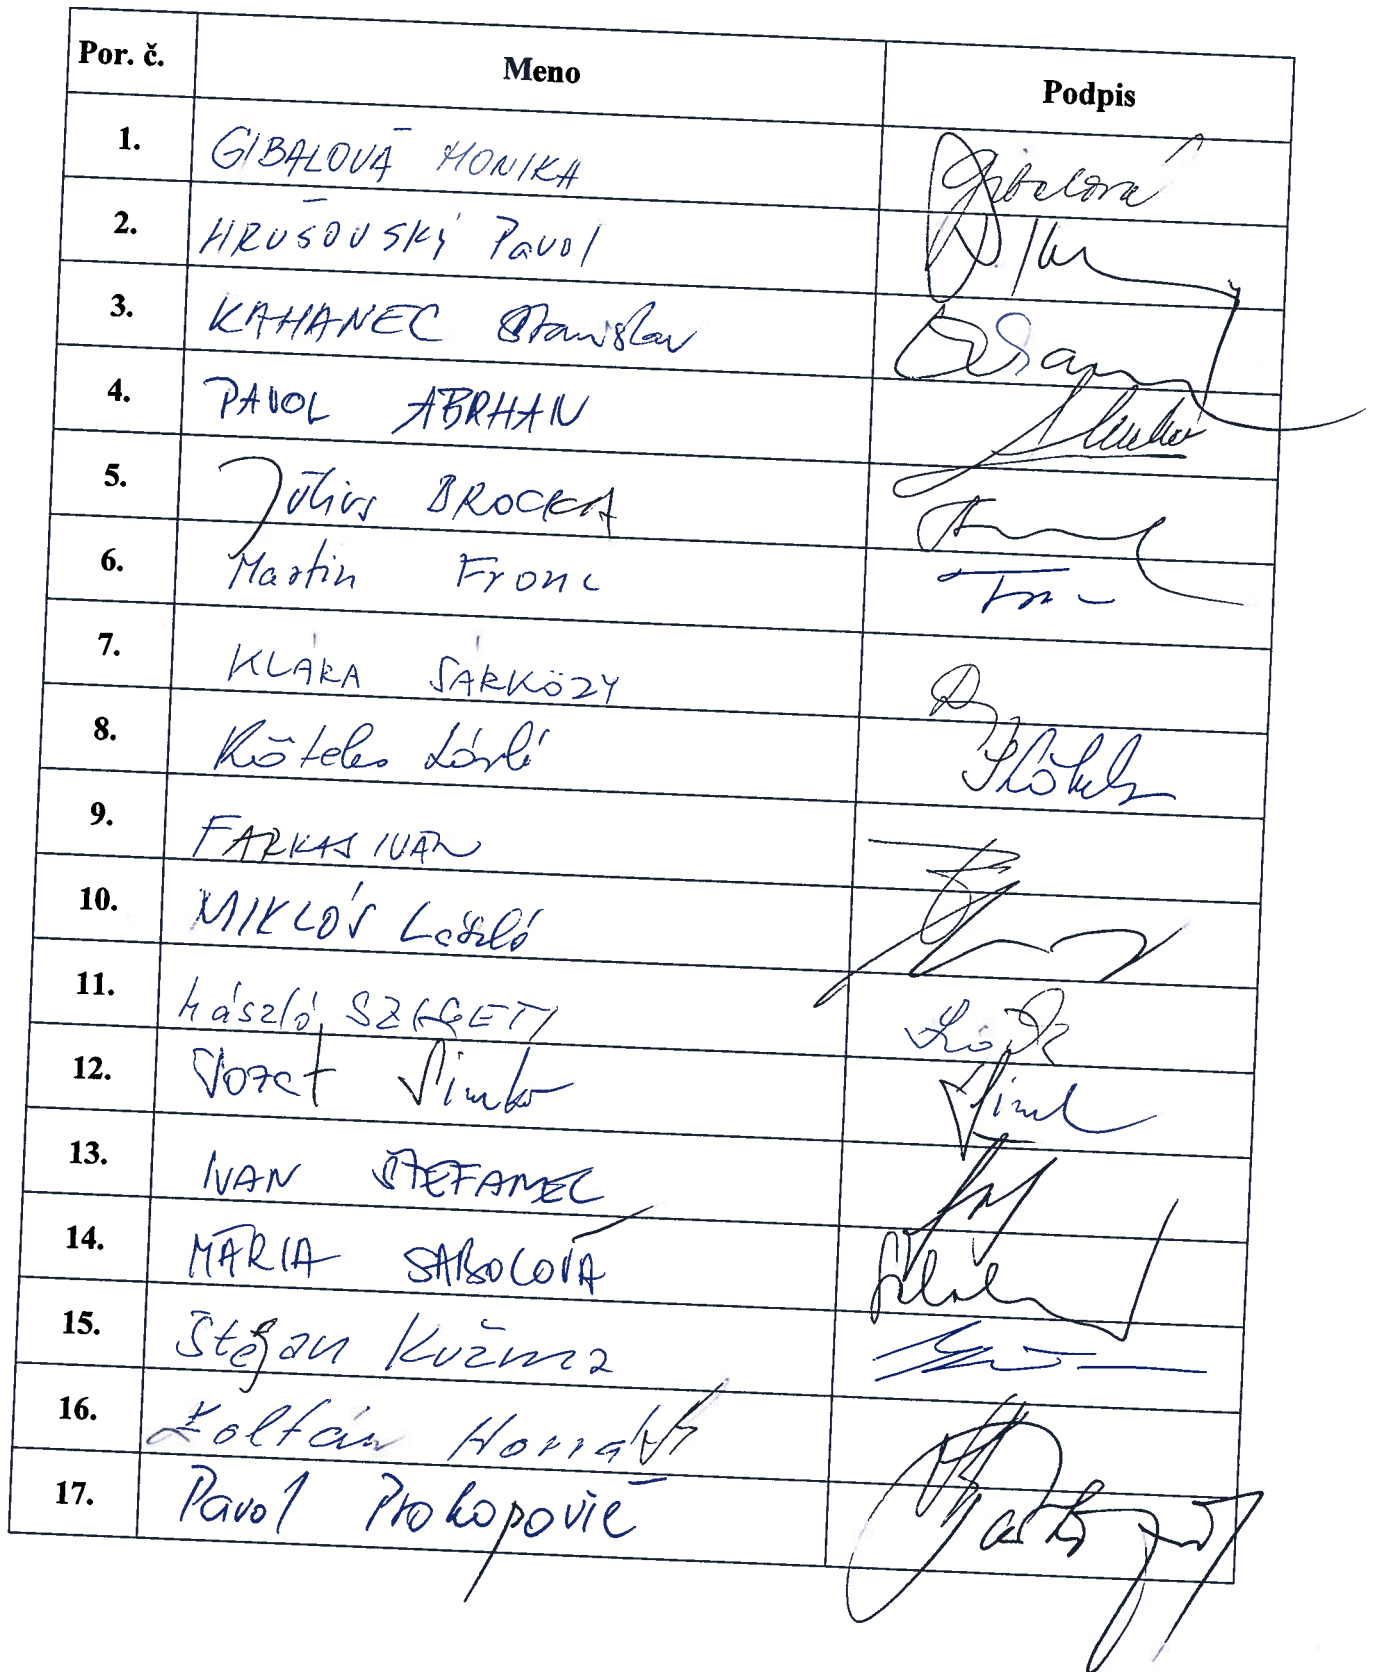 Por. č. Meno Podpis
1. GIBALOVÁ MONIKA Gibalová
2. HRUŠOVSKÝ Pavol
3. KAHANEC Stanislav
4. PAVOL ABRHAN
5. Július BROCKA
6. Martin Fronc
7. KLÁRA SÁRKÖZY
8. Köteles László
9. FARKAS IVÁN
10. MIKLÓS László
11. László SZIGETI
12. Jozef Šimko
13. IVAN ŠTEFANEC
14. MÁRIA SABOLOVÁ
15. Štefan Kužma
16. Zoltán Horváth
17. Pavol Prokopovič